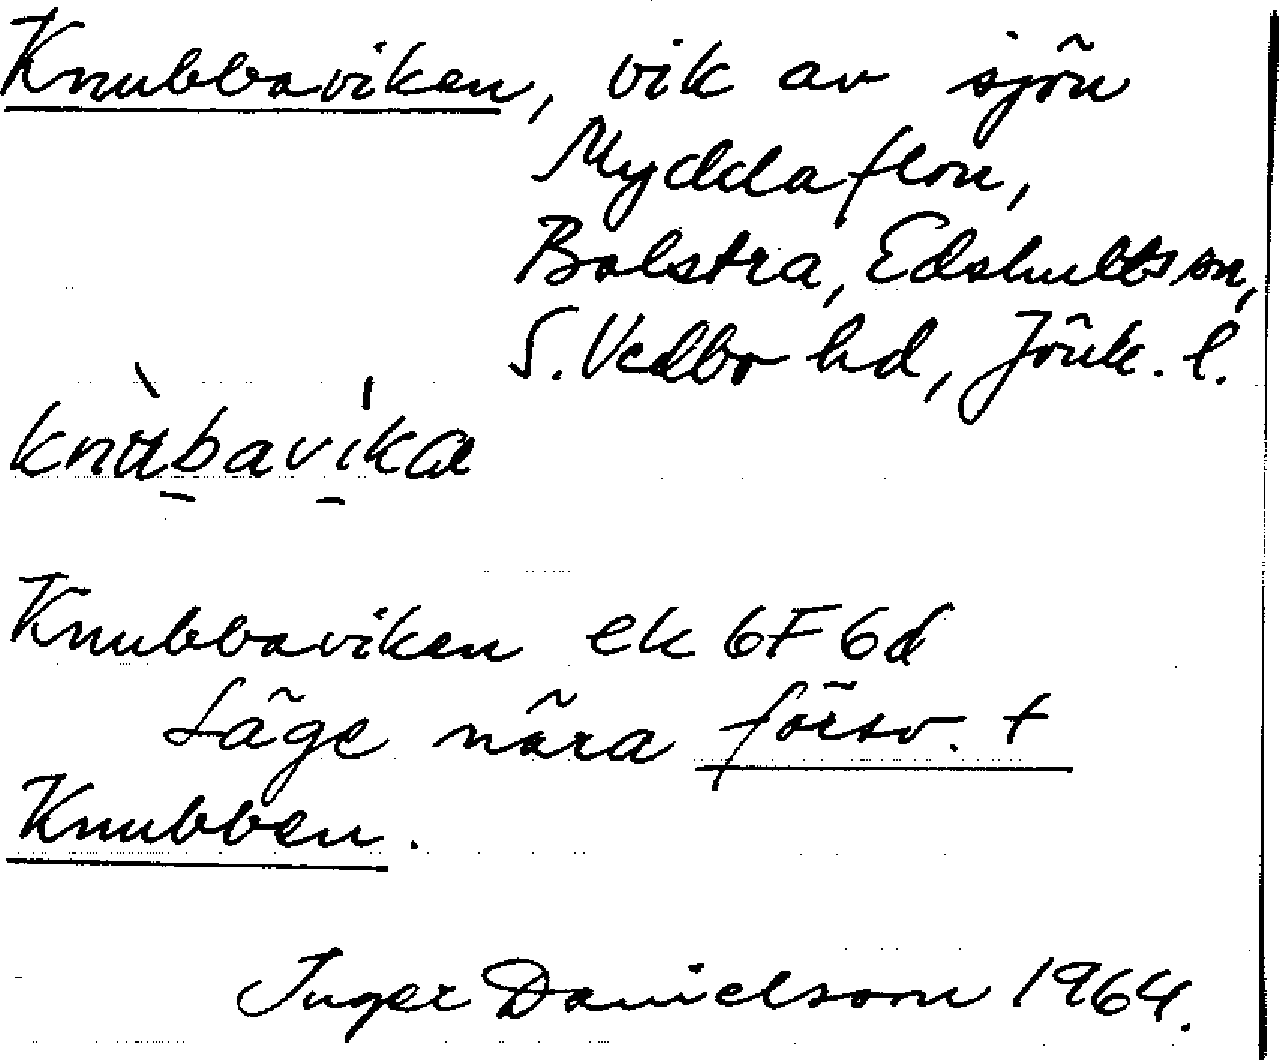 Knubbaviken, vik av sjön
Myddaflon,
Bolstra, Edshults sn,
S. Vedbo hd, Jönk. l.
knùbavi̍ka
Knubbaviken ek 6F6d
Läge nära försv. t
Knubben.
Inger Danielsson 1964.